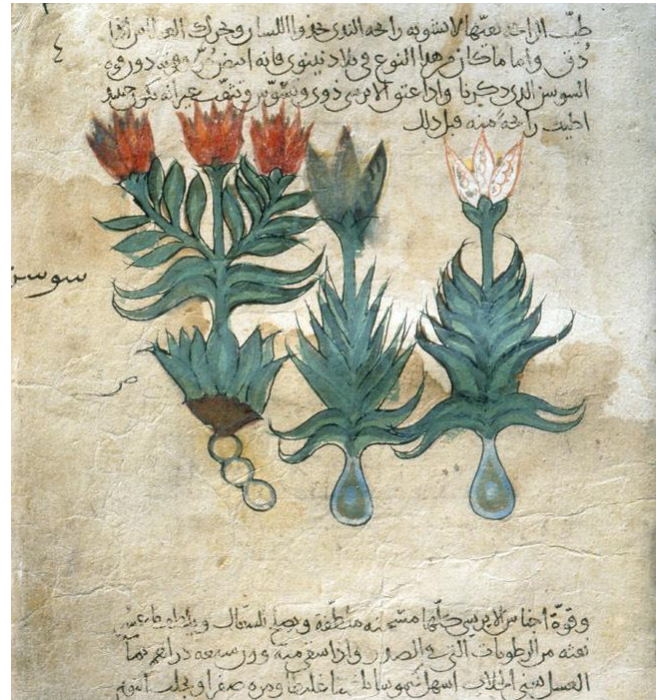 طيب الرائحة لا تشوبه رائحة الندى يحذو اللسان ويحرك العطاس اذا
دق واما ما كان من هذا النوع في بلاد نينوى فانه ابيض مر وقوته دون قوة
السوسن الذي ذكرنا واذا عتق الايرسا دود وتسوس وتثقب غير انه يكون حينئذ
اطيب رائحة منه قبل ذلك
سوسن
وقوة اجناس الايرسا كلها مسخنة ملطفة ويصلح للسعال ويلطف ما عسر
نفثه من الرطوبات التي في الصدر واذا سقي منه وزن سبعة درخمي بما
العسل اسهل كيموسا غليظا ومرة صفرا ويجلب النوم